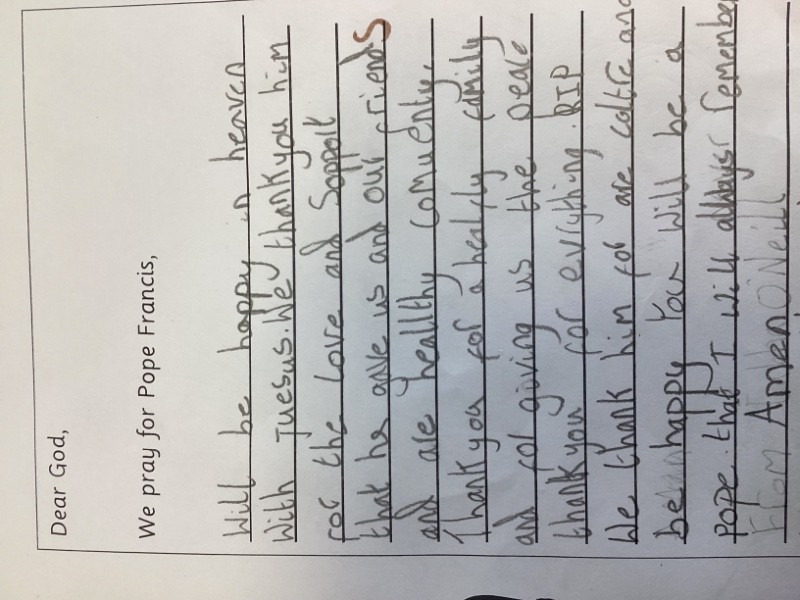 Dear God,
We pray for Pope Francis,
Will be happy in heaven
with Juesus. We thankyou him
for the love and Sopport
that he gave us and our friends
and are heallthy comuenty.
Thank you for a healfy family
and for giving us the peace
thankyou for evrything. RIP
We thank him for are coltre and
be happy Your will be a
POPE. that I will allways remember
From Amen O'Neill